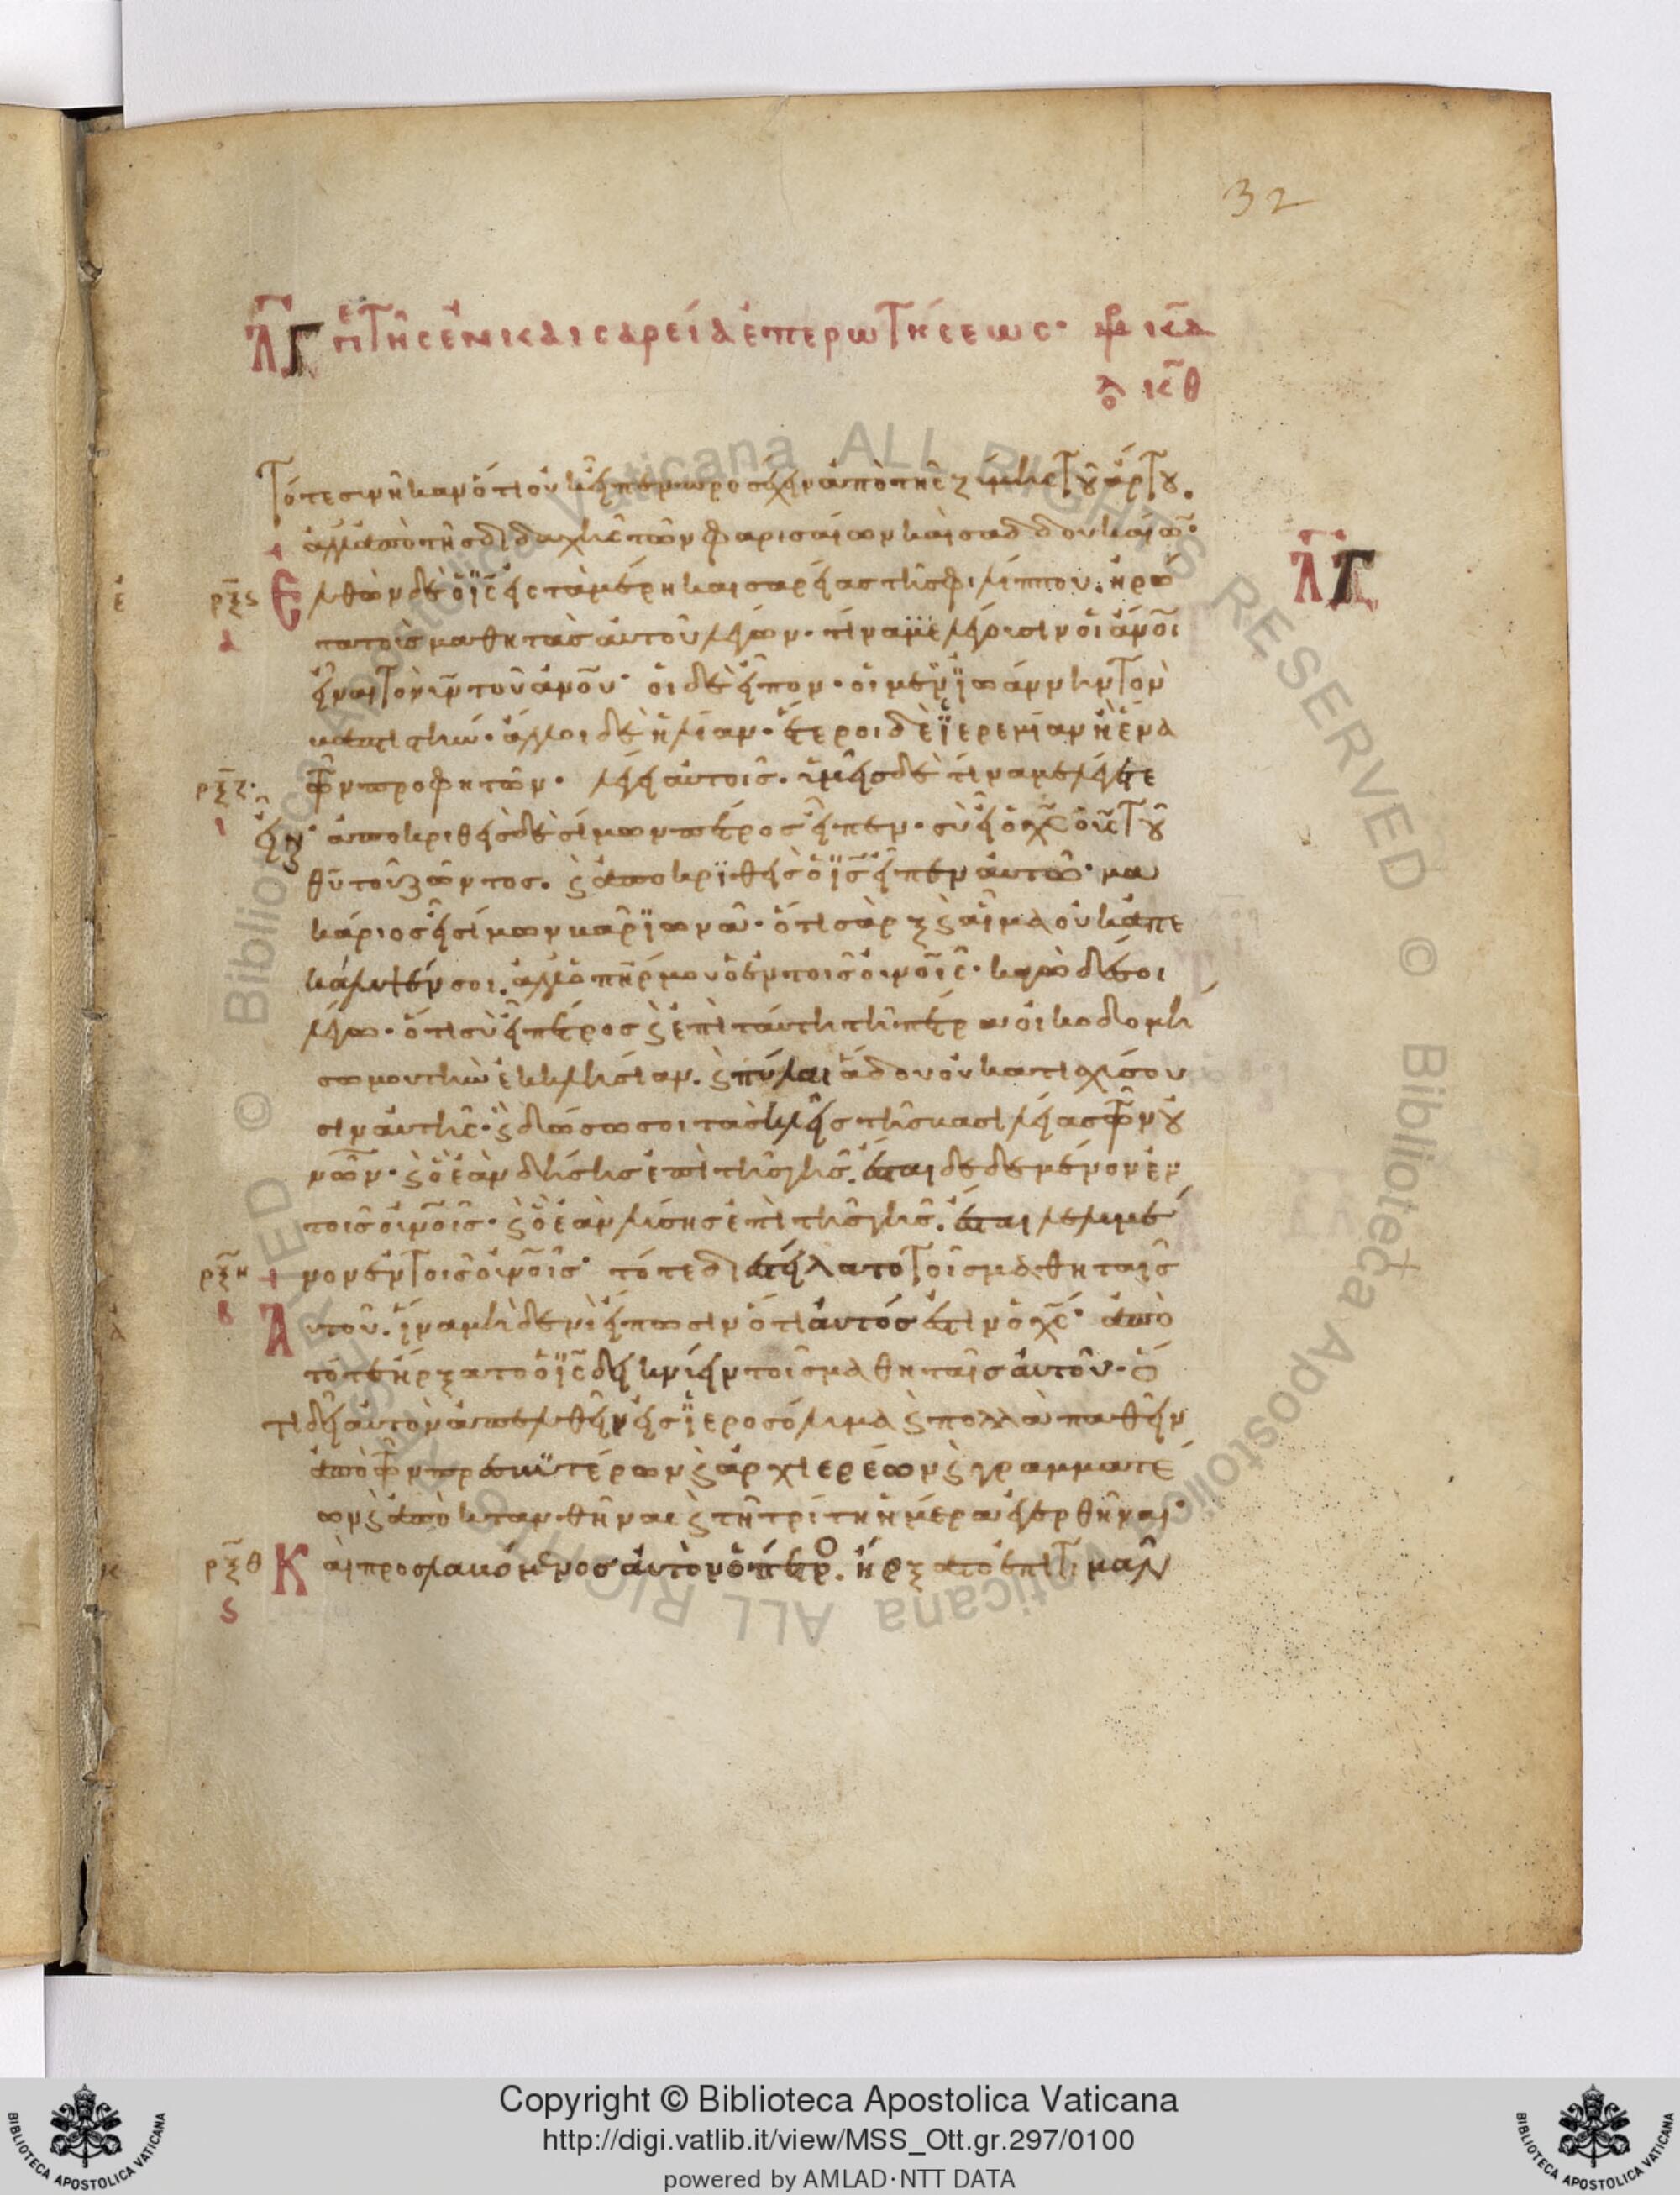 32
ΛΓ πε τῆς ἐν καισαρεία ἐπερωτήσεως· μρ κδ
λο κθ
Τότε συνῆκαν ὅτι οὐκ εἶπεν προσέχειν ἀπὸ τῆς ζύμης τοῦ ἄρτου.
ἀλλὰ ἀπὸ τῆς διδαχῆς τῶν φαρισαίων καὶ σαδδουκαίων·
ΛΓ
ρξς Ἐλθὼν δὲ ὁ ις εἰς τὰ μέρη καισαρείας τῆς φιλίππου. ἠρώ
α τα τοὺς μαθητὰς αὐτοῦ λέγων· τίνα με λέγουσιν οἱ ανοι
εἶναι τὸν υν τοῦ ανου· οἱ δὲ εἶπον· οἱ μὲν ϊωάννην τὸν
βαπτιστήν· ἄλλοι δὲ ἠλίαν· ἕτεροι δὲ ϊερεμίαν ἢ ἕνα
ρξζ τῶν προφητῶν· λέγει αὐτοῖς· ὑμεῖς δὲ τίνα με λέγετε
ι εἶναι· ἀποκριθεὶς δὲ σίμων πέτρος εἶπεν· σὺ εἶ ὁ χς ὁ υς τοῦ
θυ τοῦ ζῶντος. ϗ ἀποκριθεὶς ὁ ις εἶπεν αὐτῶ· μα
κάριος εἶ σίμων βαρϊωνᾶ· ὅτι σὰρξ ϗ αἷμα οὐκ ἀπε
κάλυψέν σοι. ἀλλ' ὁ πηρ μου ὁ ἐν τοῖς ουνοις· κἀγὼ δέ σοι
λέγω· ὅτι σὺ εἶ πέτρος ϗ ἐπὶ ταύτη τῆ πέτρα οἰκοδομή
σω μου τὴν ἐκκλησίαν. ϗ πύλαι ἅδου οὐ κατισχύσου
σιν αὐτῆς· ϗ δώσω σοι τὰς κλεῖς τῆς βασιλείας τῶν ου
νῶν· ϗ ὃ ἐὰν δήσης ἐπὶ τῆς γῆς. ἔσται δεδεμένον ἐν
τοῖς ουνοις· ϗ ὃ ἐὰν λύσης ἐπὶ τῆς γῆς. ἔσται λελυμέ
ρξη νον ἐν τοῖς ουνοις· τότε διεστείλατο τοῖς μαθηταῖς
β Αὐτοῦ. ἵνα μηδενὶ εἴπωσιν ὅτι αὐτός ἐστιν ὁ χς· ἀπὸ
τότε ἤρξατο ὁ ις δεικνύειν τοῖς μαθηταῖς αὐτοῦ· ὅ
τι δεῖ αὐτὸν ἀπελθεῖν εἰς ϊεροσόλυμα ϗ πολλὰ παθεῖν
ἀπὸ τῶν πρεσβυτέρων ϗ ἀρχιερέων ϗ γραμματέ
ων ϗ ἀποκτανθῆναι ϗ τῆ τρίτη ἡμέρα ἐγερθῆναι·
ρξθ Καὶ προσλαβόμενος αὐτὸν ὁ πέτρο. ἤρξατο ἐπιτιμᾶν
ς
Copyright © Biblioteca Apostolica Vaticana
http://digi.vatlib.it/view/MSS_Ott.gr.297/0100
powered by AMLAD·NTT DATA